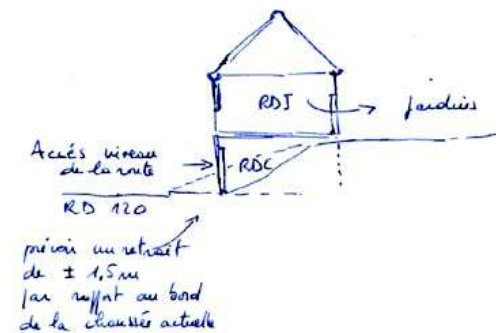 RDJ
jardins
Accès niveau
de la route
RDC
RD 120
prévoir un retrait
de ± 1,5m
par rapport au bord
de la chaussée actuelle